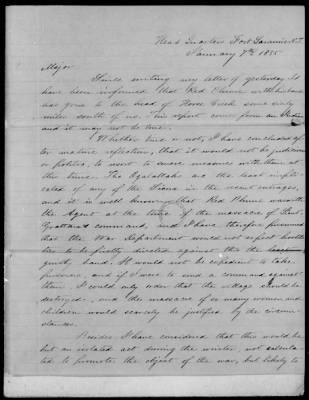 Head Quarters Fort Laramie N.T.
January 7th 1855
Major
Since writing my letter of yesterday I
have been informed that Red Plume with his band
has gone to the head of Horse Creek some sixty
miles south of us. This report came from an Indian
and it may not be true.
Whether true or not, I have concluded af-
ter mature reflection, that it would not be judicious
or politic, to resort to severe measures with them at
this time. The Ogalallah are the least impli-
cated of any of the Sioux in the recent outrages,
and it is well known that Red Plume
the Agent at the time of the massacre of Lieut.
Grattan's command, and I have therefore presumed
that the War Department would not expect hostili-
ties to be firstly directed against the the least
guilty band. It would not be expedient to take
prisoners, and if I were to send a command against
them, I could only order that the village should be
destroyed, and the massacre of so many women and
children would scarcely be justified by the circum-
stances.
Besides I have considered that this would be
but an isolated act during the winter, not calcula-
ted to promote the object of the war, but likely to